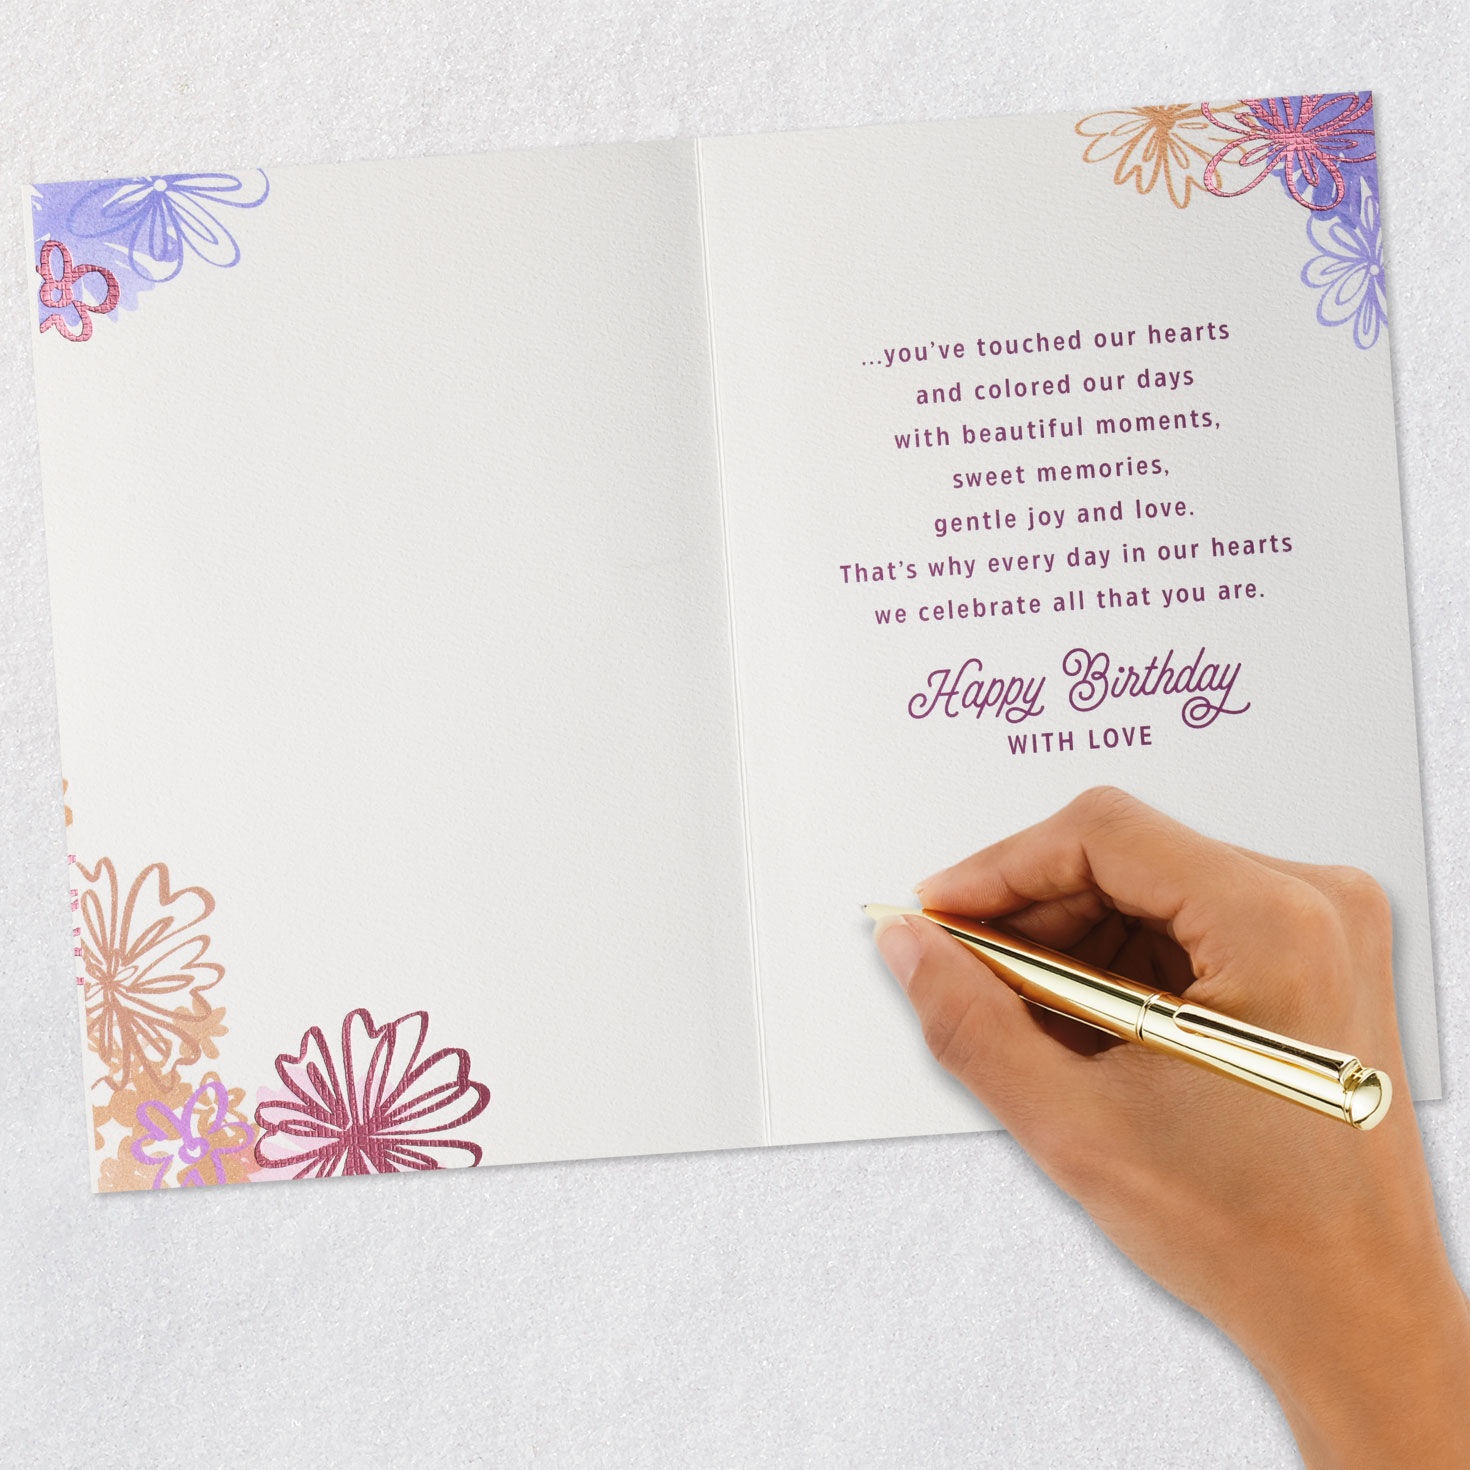 ...you've touched our hearts
and colored our days
with beautiful moments,
sweet memories,
gentle joy and love.
That's why every day in our hearts
we celebrate all that you are.
Happy Birthday
WITH LOVE